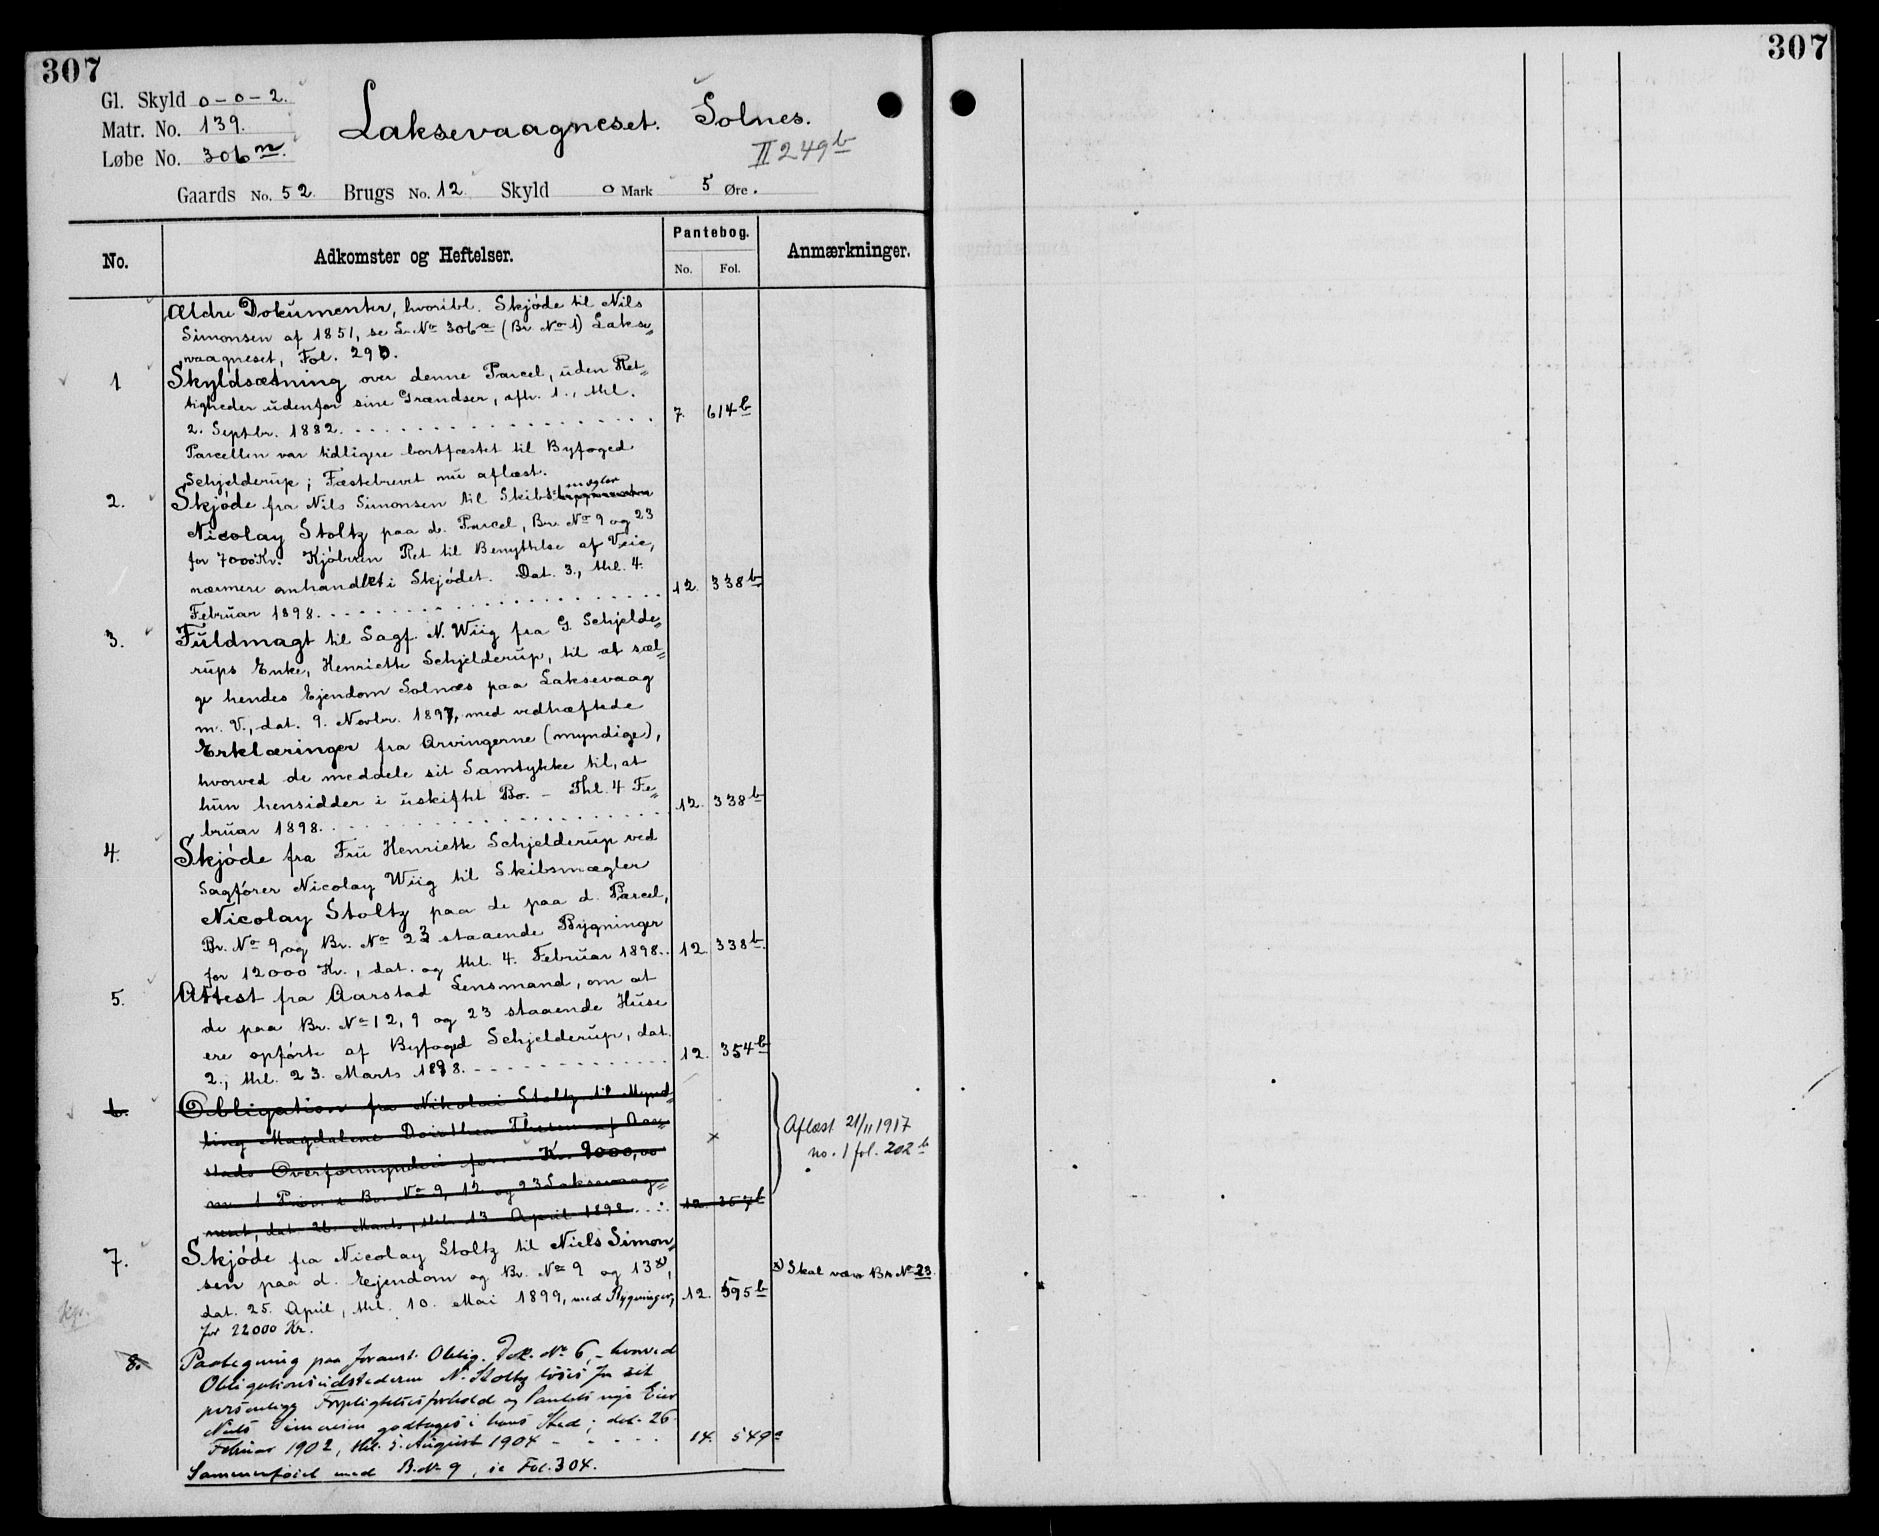 307
307
Gl. Skyld 0-0-2.
Matr. No. 139.
Løbe No. 306 n.
Laksevaagneset. Solnes.
II 249 b
Gaards No. 52. Brugs No. 12 Skyld 0 Mark 5 Øre.
No. Adkomster og Heftelser. Pantebog. No. Fol. Anmærkninger.
Ældre Dokumenter, hvoribl. Skjøde til Nils
Simonsen af 1851, se L. No 306 a (Br. No 1) Lakse=
vaagneset, Fol. 290.
1 Skyldsætning over denne Parcel, uden Ret=
tigheder udenfor sine Grændser, afh. 1., thl.
2. Septbr. 1882. 7. 614 b
Parcellen var tidligere bortfæstet til Byfoged
Schjelderup; Fæstebrevet nu aflæst.
2. Skjøde fra Nils Simonsen til Skibsmægler
Nicolay Stoltz paa d. Parcel, Br. No 9 og 23
for 7000 Kr. Kjøberen Ret til Benyttelse af Veie,
nærmere omhandlet i Skjødet. Dat. 3., thl. 4.
Februar 1898. 12. 338 b
3. Fuldmagt til Sagf. N. Wiig fra G. Schjelde=
rups Enke, Henriette Schjelderup, til at sæl=
ge hendes Ejendom Solnæs paa Laksevaag
m. V., dat. 9. Novbr. 1897, med vedhæftede
Erklæringer fra Arvingerne (myndige),
hvorved de meddele sit Samtykke til, at
hun hensidder i uskiftet Bo. - Thl. 4 Fe=
bruar 1898. 12. 338 b
4. Skjøde fra Fru Henriette Schjelderup ved
Sagfører Nicolay Wiig til Skibsmægler
Nicolay Stoltz paa de paa d. Parcel,
Br. No 9 og Br. No 23 staaende Bygninger
for 12000 Kr., dat. og thl. 4. Februar 1898. 12 338 b.
5. Attest fra Aarstad Lensmand, om at
de paa Br. No 12, 9 og 23 staaende Huse
ere opførte af Byfoged Schjelderup, dat.
2., thl. 23. Marts 1898. 12. 354 b
6. Obligation fra Nikolai Stoltz til Mynd=
ling Magdalene Dorothea Thesen af Aar=
stads Overformynderi for Kr. 9000,00
m. 1 Prior. i Br. No 9, 12 og 23 Laksevaag=
neset, dat. 26. Marts, thl. 13 April 1898. 12. 357 b
Aflæst 21/11 1917
no. 1 fol. 202 b
7. Skjøde fra Nicolay Stoltz til Niels Simon=
sen paa d. Ejendom og Br. No 9 og 13 x),
dat. 25. April, thl. 10. Mai 1899, med Bygninger, 12. 595 b
for 22000 Kr.
x) Skal være Br. No 23.
8. Paategning paa foranst. Oblig. Dok. No 6, - hvorved
Obligationsudstederen N. Stoltz løses fra sit
personlige Forpligtelsesforhold og Pantets nye Eier
Niels Simonsen godtages i hans Sted; dat. 26
Februar 1902, thl. 5. August 1904 14. 549 a
Sammenføiet med B.No 9, se Fol. 304.